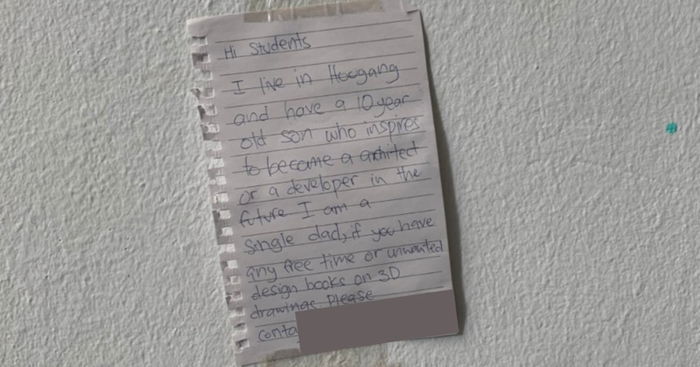 Hi Students
I live in Hougang
and have a 10 year
old son who inspires
to become a architect
or a developer in the
future I am a
Single dad, if you have
any free time or unwanted
design books on 3D
drawings please
conta